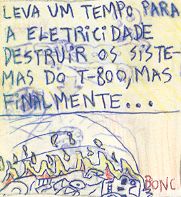 LEVA UM TEMPO PARA
A ELETRICIDADE
DESTRUIR OS SISTE-
MAS DO T-800, MAS
FINALMENTE...
BONC